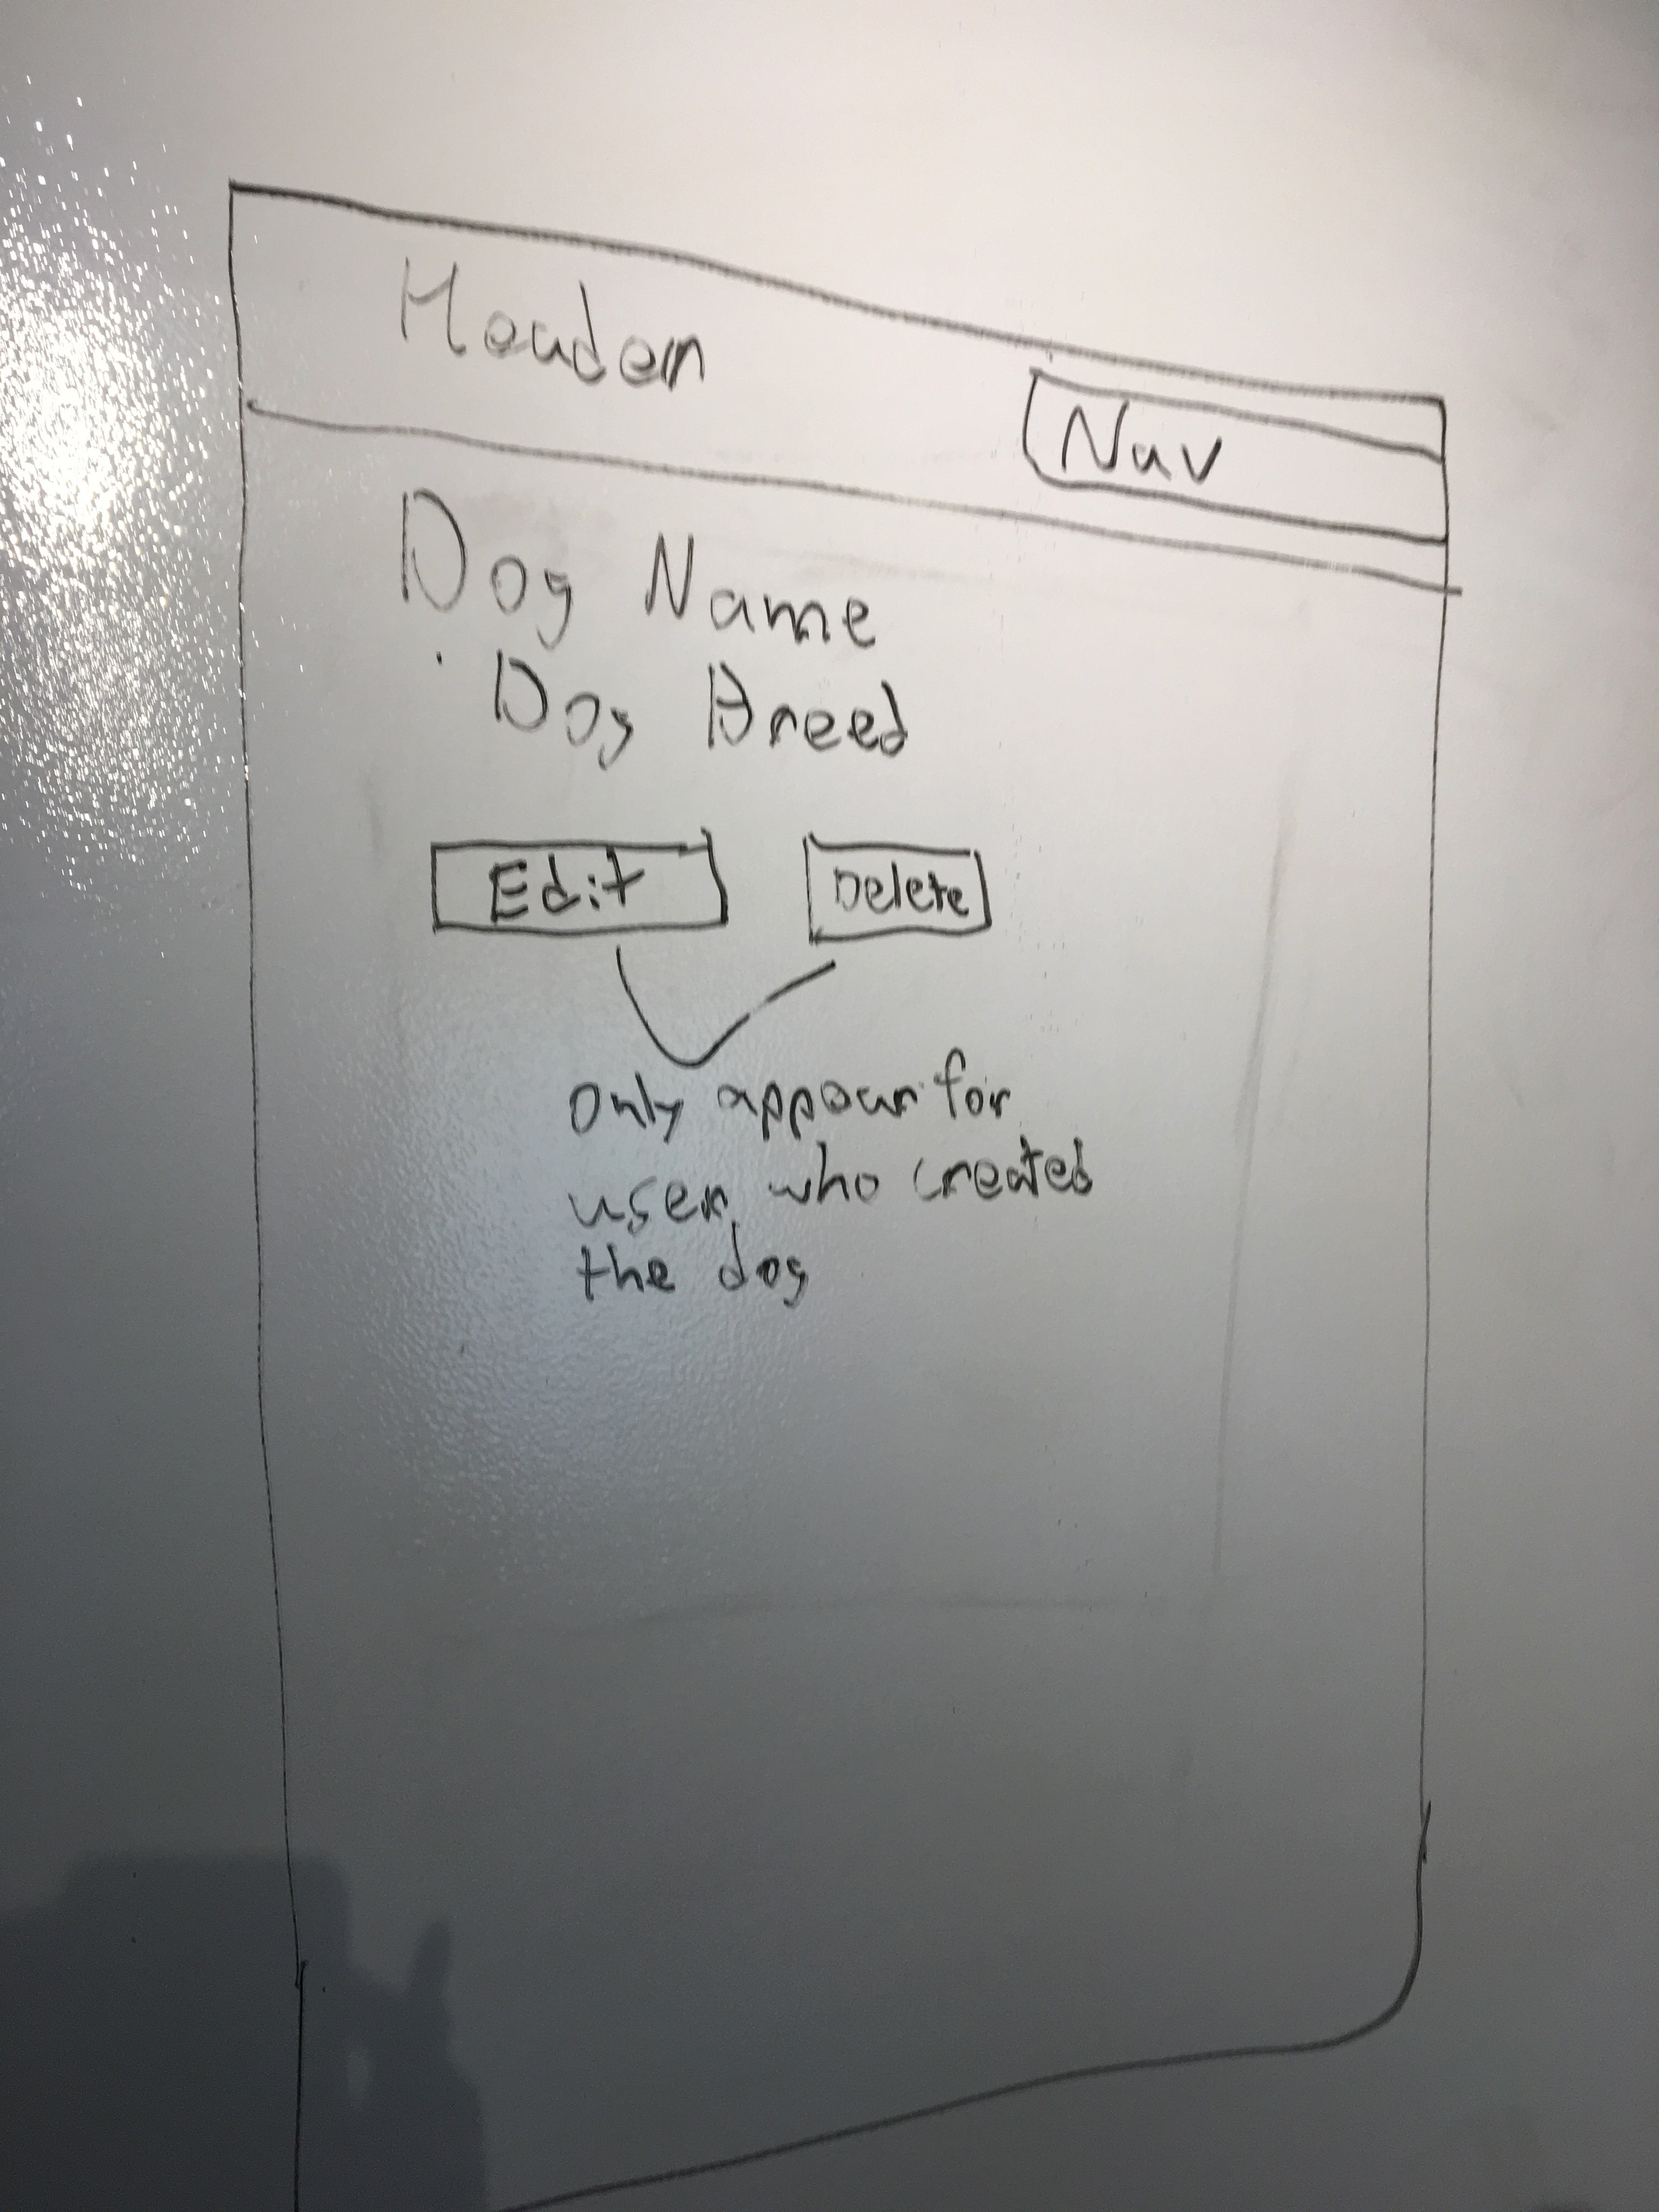 Header
Nav
Dog Name
Dog Breed
Edit
Delete
Only appear for
user who created
the dog